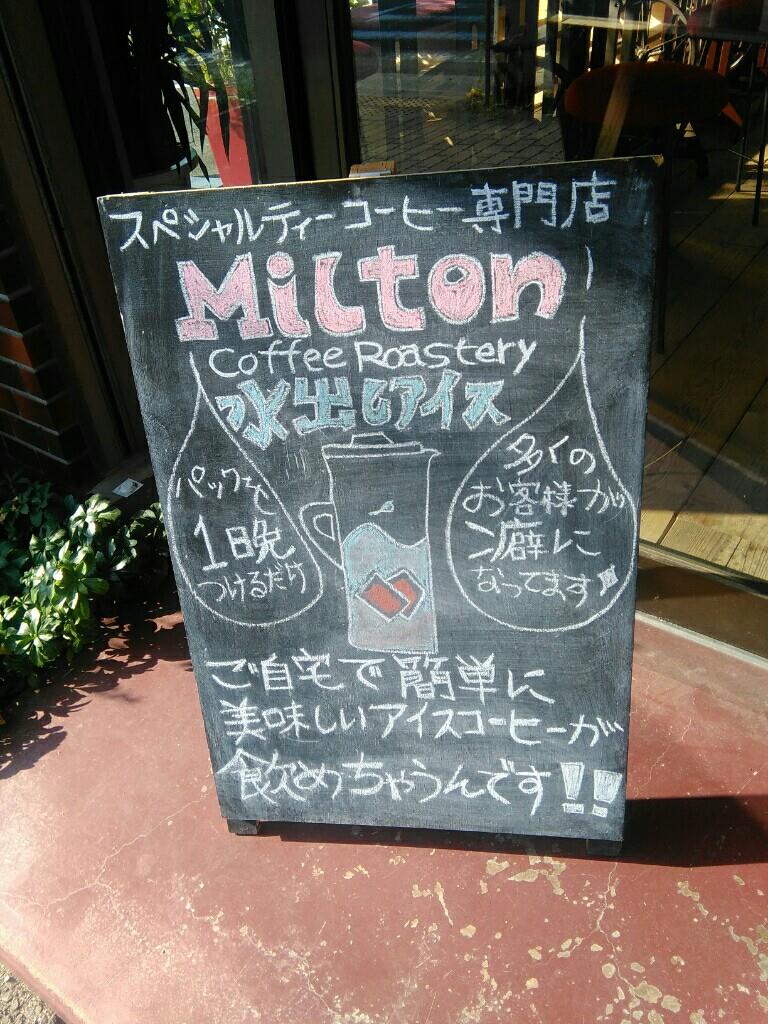 スペシャルティーコーヒー専門店
Milton
Coffee Roastery
水出しアイス
パックを
1晩
つけるだけ
多くの
お客様が
癖に
なってます!
ご自宅で簡単に
美味しいアイスコーヒーが
飲めちゃうんです!!